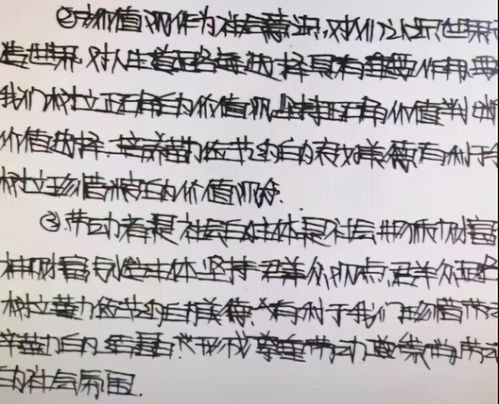 ②价值观作为社会意识,对人们认识世界
造世界,对人生道路的选择具有重要作用,要
我们树立正确的价值观,坚持正确价值判断
价值选择.培养勤俭节约的良好美德有利于
树立珍惜粮食的价值观念.
③劳动者是社会的主体是社会物质财富
神财富创造主体坚持群众观点,群众路
树立勤俭节约的美德,有利于我们珍惜劳
辛勤的结果,形成尊重劳动 的劳动
的社会氛围.